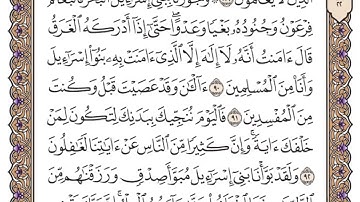 فِرْعَوْنُ وَجُنُودُهُۥ بَغْيًا وَعَدْوًا ۖ حَتَّىٰٓ إِذَآ أَدْرَكَهُ ٱلْغَرَقُ
قَالَ ءَامَنتُ أَنَّهُۥ لَآ إِلَٰهَ إِلَّا ٱلَّذِىٓ ءَامَنَتْ بِهِۦ بَنُوٓا۟ إِسْرَٰٓءِيلَ
وَأَنَا۠ مِنَ ٱلْمُسْلِمِينَ ٩٠ ءَآلْـَٰٔنَ وَقَدْ عَصَيْتَ قَبْلُ وَكُنتَ
مِنَ ٱلْمُفْسِدِينَ ٩١ فَٱلْيَوْمَ نُنَجِّيكَ بِبَدَنِكَ لِتَكُونَ لِمَنْ
خَلْفَكَ ءَايَةً ۚ وَإِنَّ كَثِيرًا مِّنَ ٱلنَّاسِ عَنْ ءَايَٰتِنَا لَغَٰفِلُونَ
٩٢ وَلَقَدْ بَوَّأْنَا بَنِىٓ إِسْرَٰٓءِيلَ مُبَوَّأَ صِدْقٍ وَرَزَقْنَٰهُم مِّنَ